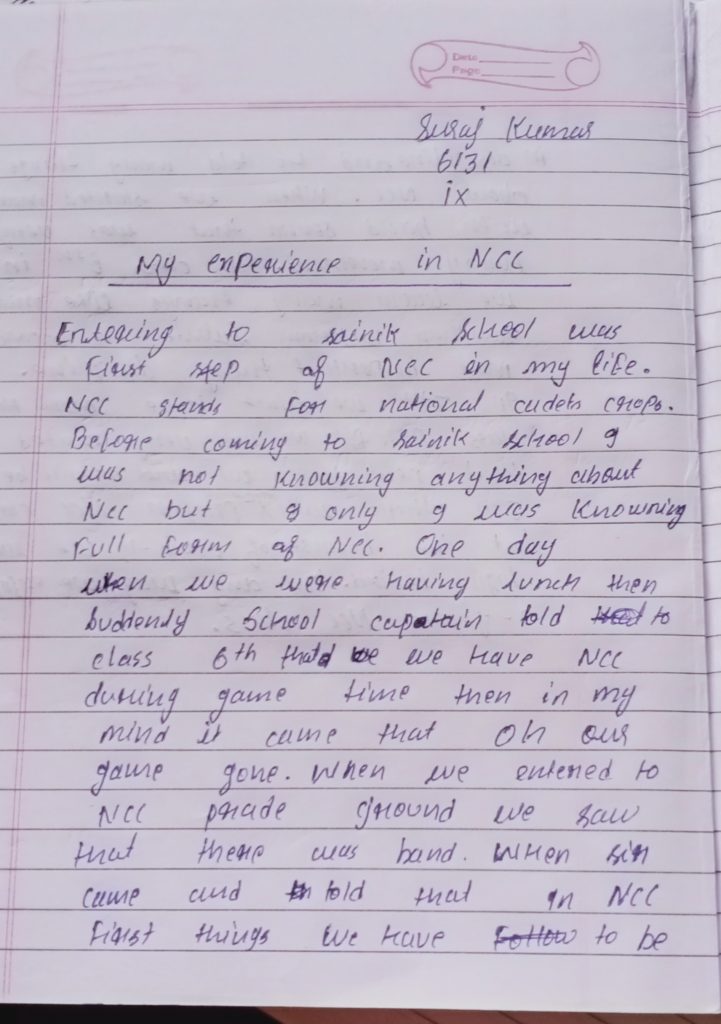 Date
Page
Suraj Kumar
6131
ix
My experience in NCC
Entering to sainik school was
First step of NCC in my life.
NCC stands For national cadets crops.
Before coming to sainik school I
was not knowning anything about
NCC but I only I was Knowning
Full form of NCC. One day
when we were having lunch then
suddenly school capatain told to
class 6th that we we have NCC
during game time then in my
mind it came that Oh our
game gone. When we entered to
NCC prade ground we saw
that there was band. When sir
came and told that in NCC
First things we have Follow to be